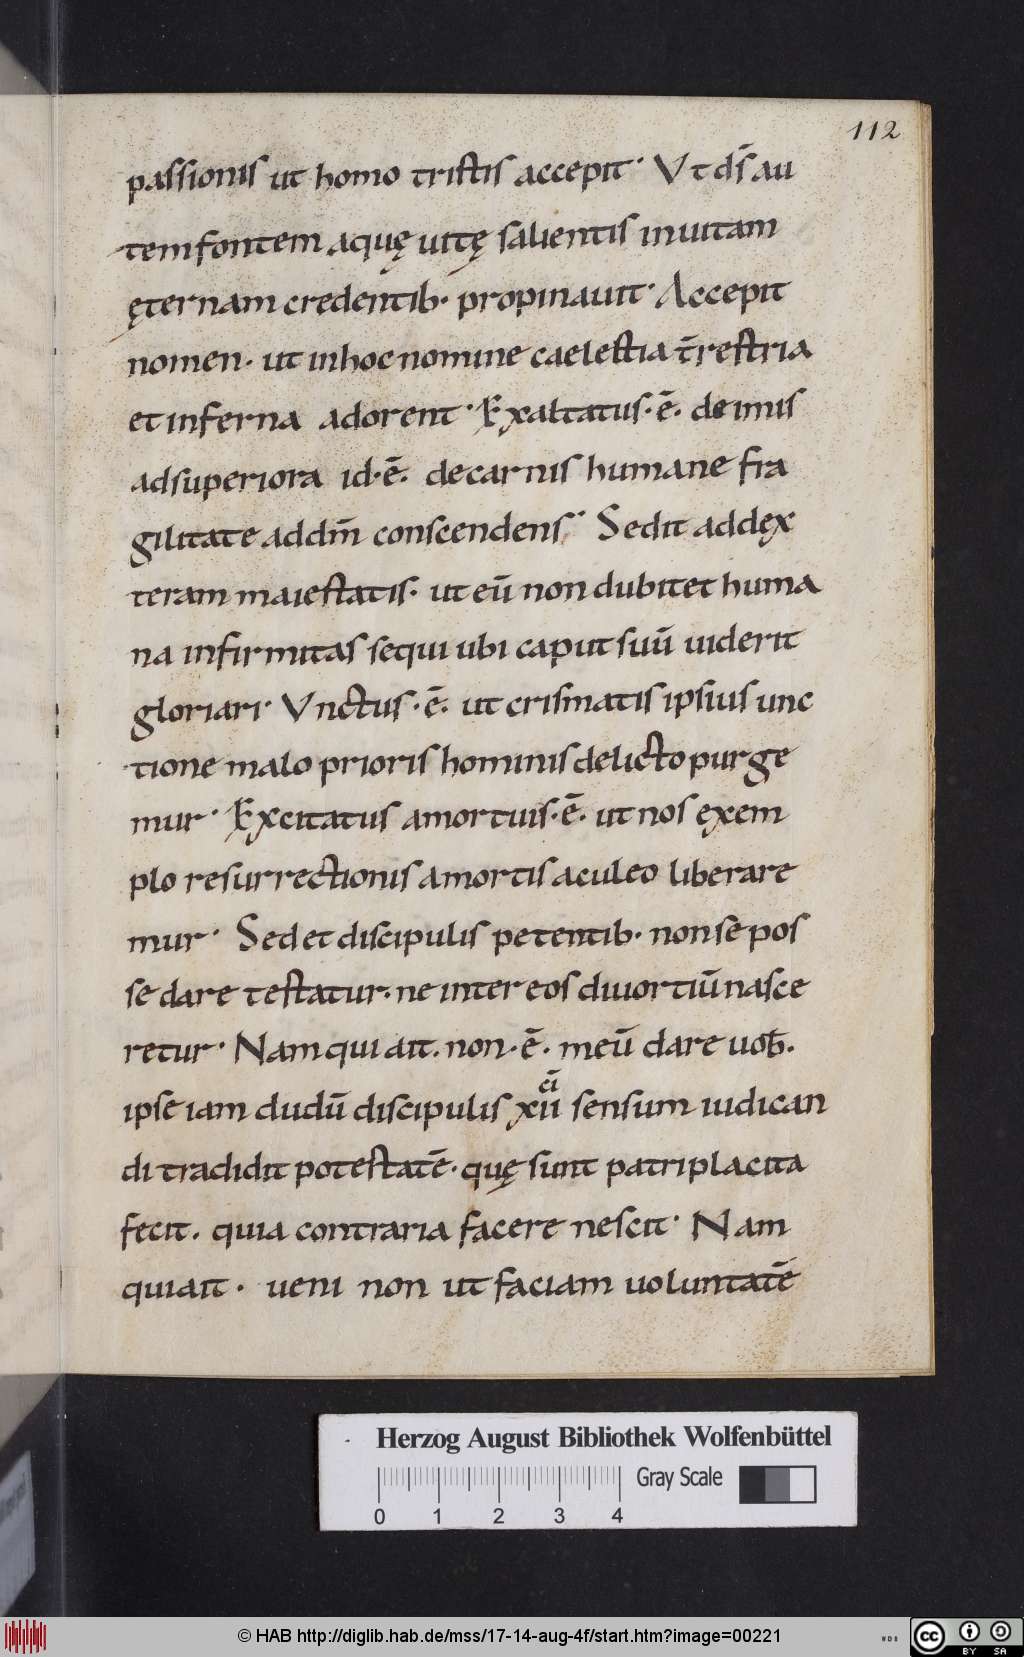 112
passionis ut homo tristis accepit· Vt ds̄ au
tem fontem aquę uitę salientis in uitam
ęternam credentib· propinauit· Accepit
nomen· ut in hoc nomine caelestia t̄restria
et inferna adorent· Exaltatus·ē· de imis
ad superiora id·ē· de carnis humane fra
gilitate ad dm̄ conscendens· Sedit ad dex
teram maiestatis· ut eū non dubitet huma
na infirmitas sequi ubi caput suū uiderit
gloriari· Vnctus·ē· ut crismatis ipsius unc
tione malo prioris hominis delicto purge
mur· Excitatus a mortuis·ē· ut nos exem
plo resurrectionis a mortis aculeo liberare
mur· Sed et discipulis petentib· non se pos
se dare testatur· ne inter eos diuortiū nasce
retur· Nam qui ait. non·ē· meū dare uob̄.
ipse iam dudū discipulis xii cī sensum iudican
di tradidit potestatē· quę sunt patri placita
fecit. quia contraria facere nescit· Nam
qui ait· ueni non ut faciam uoluntatē
Herzog August Bibliothek Wolfenbüttel
Gray Scale
0 1 2 3 4
© HAB http://diglib.hab.de/mss/17-14-aug-4f/start.htm?image=00221
WDB
cc BY SA